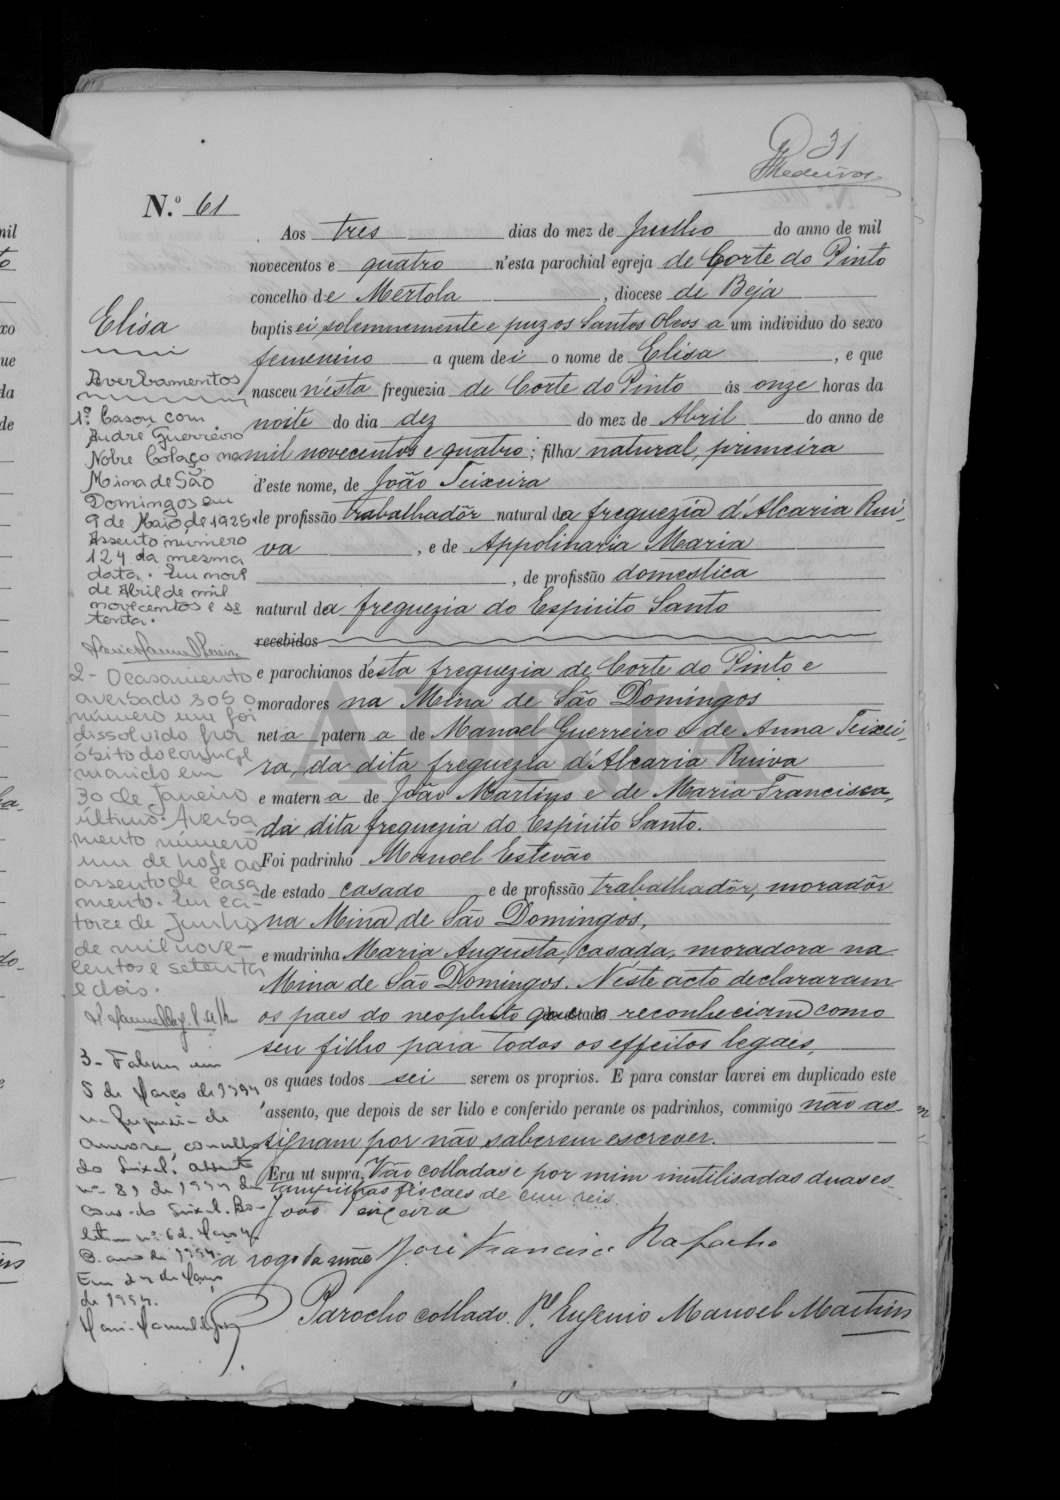 31
Medeiros
N.º 61
Aos tres dias do mez de Julho do anno de mil
novecentos e quatro n'esta parochial egreja de Corte do Pinto
concelho de Mertola, diocese de Beja
baptisei solemnemente e puz os Santos Oleos a um individuo do sexo
femenino a quem dei o nome de Elisa, e que
nasceu n'esta freguezia de Corte do Pinto ás onze horas da
noite do dia dez do mez de Abril do anno de
mil novecentos e quatro; filha natural, primeira
d'este nome, de João Teixeira
de profissão trabalhadôr natural da freguezia d'Alcaria Rui-
va, e de Appolinaria Maria
, de profissão domestica
natural da freguezia do Espirito Santo
recebidos
e parochianos d'esta freguezia de Corte do Pinto e
moradores na Mina de São Domingos
neta paterna de Manoel Guerreiro e de Anna Teixei-
ra, da dita freguezia d'Alcaria Ruiva
e materna de João Martins e de Maria Francisca,
da dita freguezia do Espirito Santo.
Foi padrinho Manoel Estevão
de estado casado e de profissão trabalhadôr, moradôr
na Mina de São Domingos,
e madrinha Maria Augusta, casada, moradora na
Mina de São Domingos. N'este acto declararam
os paes do neophito que o reconheciam como
seu filho para todos os effeitos legaes,
os quaes todos sei serem os proprios. E para constar lavrei em duplicado este
assento, que depois de ser lido e conferido perante os padrinhos, commigo não as-
signam por não saberem escrever.
Era ut supra. Vão colladas e por mim inutilisadas duas es-
tampilhas fiscaes de cem reis.
João Teixeira
a rogo da mãe José Francisco Rafacho
Parocho collado. P.e Eugenio Manoel Martins
Elisa
Averbamentos
1º. Casou com
André Guerreiro
Nobre Colaço na
Mina de São
Domingos em
9 de Maio de 1925.
Assento número
124 da mesma
data. Em nove
de Abril de mil
novecentos e se
tenta.
2- O casamento
averbado sob o
número um foi
dissolvido por
óbito do conjuge
marido em
30 de Janeiro
último. Averba-
mento número
um de hoje ao
assento de casa
mento. Em ca-
torze de Junho
de mil nove-
centos e setenta
e dois.
3- Faleceu em
5 de Março de 1994
na freguesia de
Amora, concelho
do Seixal. Assento
nº 81 de 1994 da
Cons. do Seixal. Bo-
letim nº 62. Março
de 1994.
Em 24 de Março
de 1994.
ADBJA